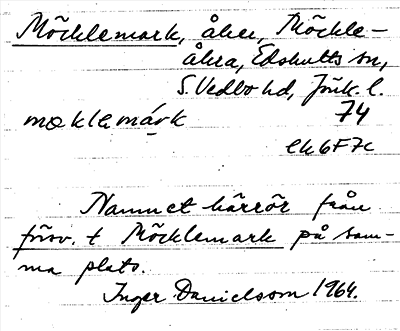 Möcklemark, åker, Möckle-
åkra, Edshults sn,
S. Vedbo hd, Jönk. l.
mæklamárk 74
ek6F7c
Namnet härrör från
försv. t Möcklemark på sam-
ma plats.
Inger Danielsson 1964.